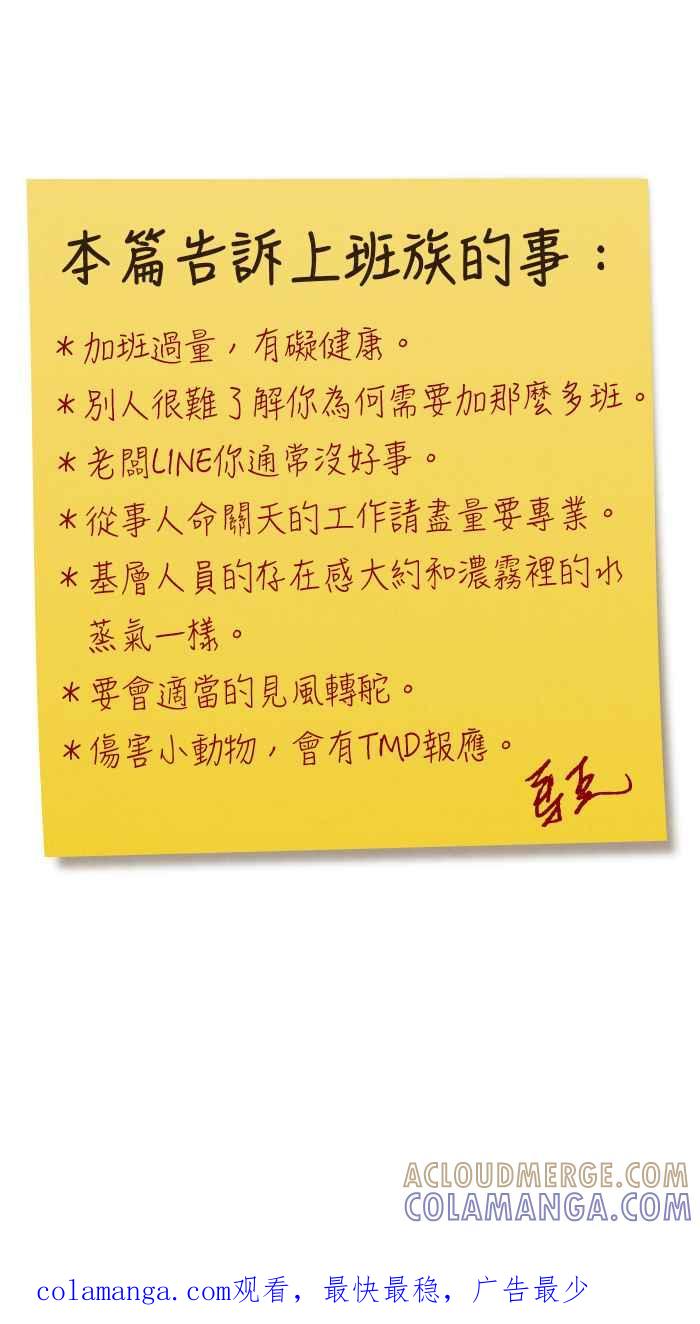 本篇告訴上班族的事：
＊加班過量，有礙健康。
＊別人很難了解你為何需要加那麼多班。
＊老闆LINE你通常沒好事。
＊從事人命關天的工作請盡量要專業。
＊基層人員的存在感大約和濃霧裡的水
蒸氣一樣。
＊要會適當的見風轉舵。
＊傷害小動物，會有TMD報應。
ACLOUDMERGE.COM
COLAMANGA.COM
colamanga.com观看，最快最稳，广告最少